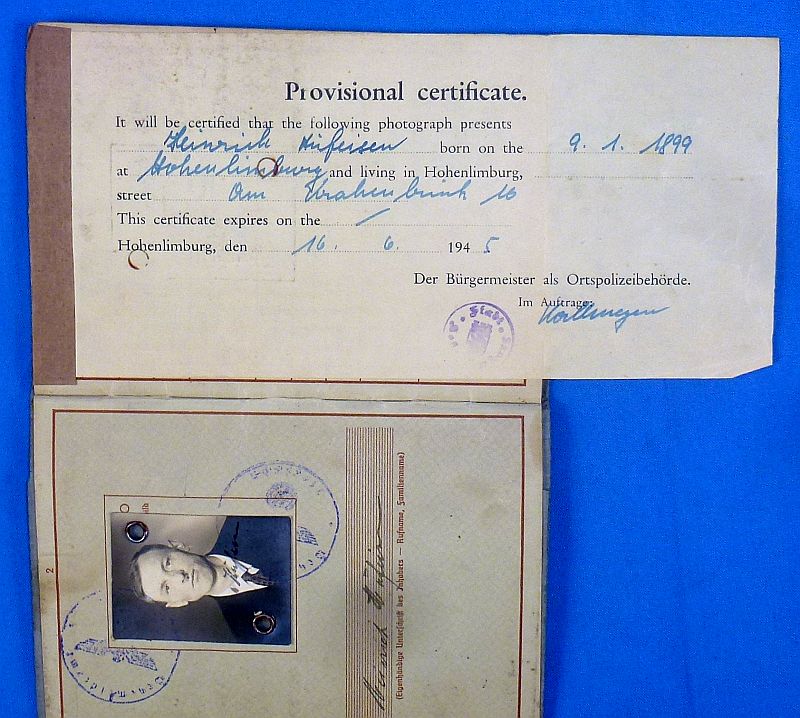 Provisional certificate.
It will be certified that the following photograph presents
Heinrich Hüfersen born on the 9. 1. 1899
at Hohenlimburg and living in Hohenlimburg,
street Am 16
This certificate expires on the /
Hohenlimburg, den 16. 6. 1945
Der Bürgermeister als Ortspolizeibehörde.
Im Auftrage:
Stadt
2
Heinrich
(Eigenhändige Unterschrift des Inhabers — Rufname, Familienname)